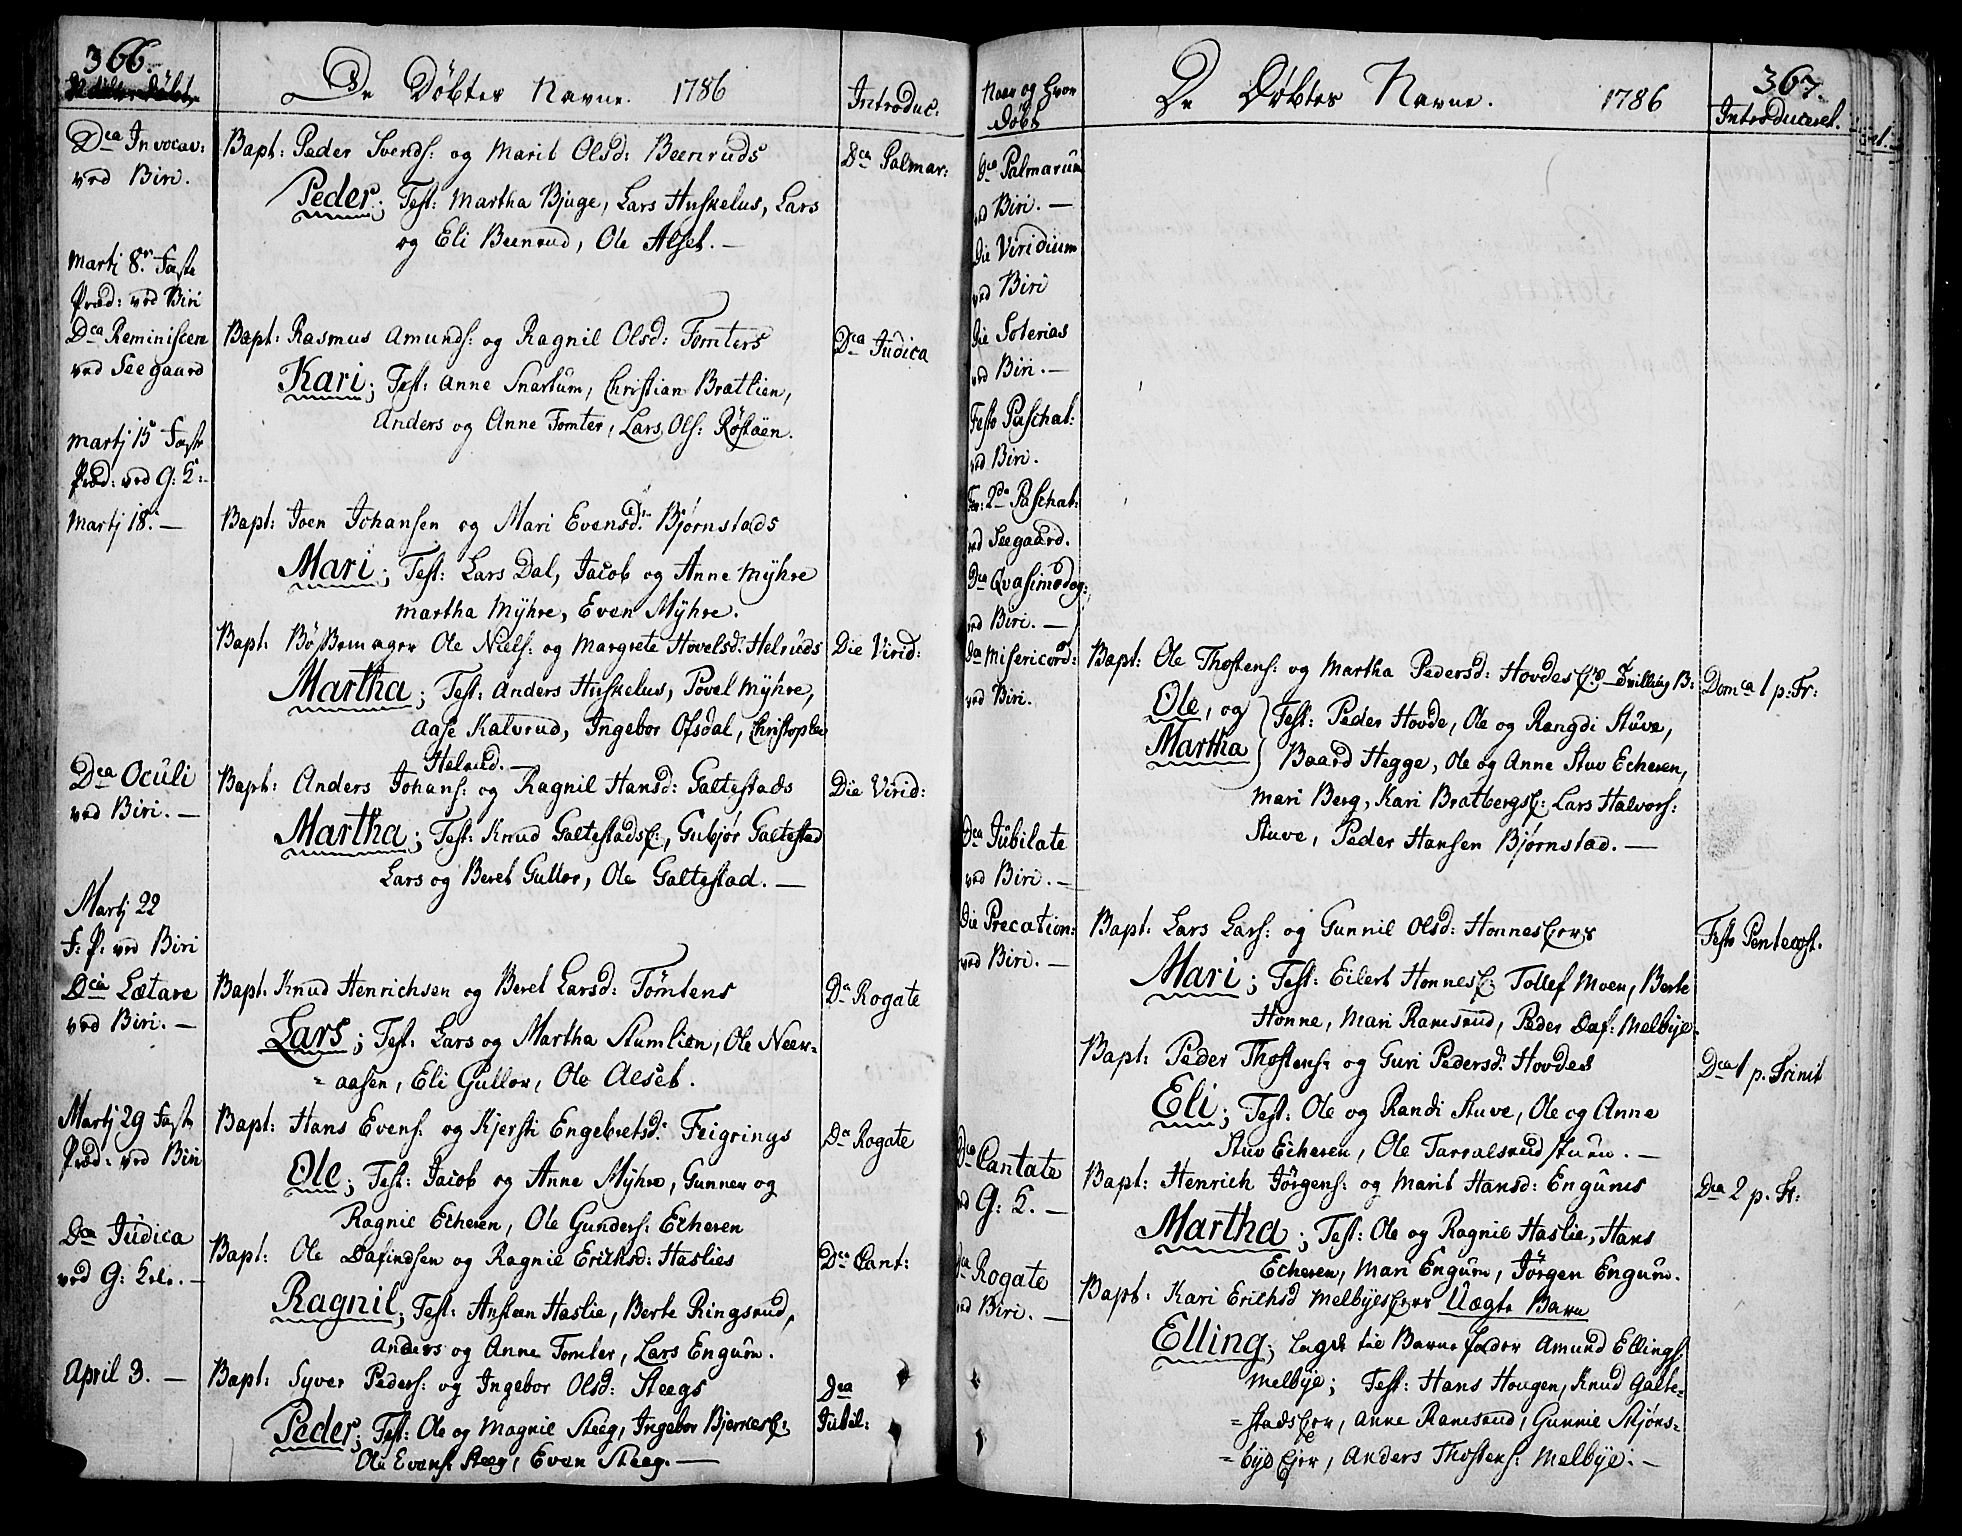 366.
De Døbtes Navne. 1786
Introduc:
Dca Invocav:
ved Biri.
Bapt: Peder Svends: og Marit Olsd: Beenruds
Dca Palmar:
Peder; Test: Martha Bjuge, Lars Huskelus, Lars
og Eli Beenrud, Ole Alset. —
Martj 8de Faste
Præd: ved Biri
Dca Reminiscere
ved Seegaard
Bapt: Rasmus Amunds: og Ragnil Olsd: Tomters
Dca Judica
Kari; Test: Anne Snartum, Christian Bratlien,
Anders og Anne Tomter, Lars Ols: Røstøen.
Martj 15 Faste
Præd: ved G: K:
Martj 18. —
Bapt: Joen Johansen og Mari Evensd: Bjørnstads
Mari; Test: Lars Dal, Jacob og Anne Mÿhre
Martha Mÿhre, Even Mÿhre.
Bapt: Bøssemager Ole Niels: og Margrete Hovelsd: Helruds
Die Virid:
Martha; Test: Anders Huskelus, Povel Mÿhre,
Aase Kalvrud, Ingebor Ofsdal, Christopher
Helrud. —
Dca Oculi
ved Biri. —
Bapt: Anders Johans: og Ragnil Hansd: Galtestads
Die Virid:
Martha; Test: Knud Galtestads E:, Gubjør Galtestad
Lars og Beret Gullor, Ole Galtestad. —
Martj 22
F: P: ved Biri
Dca Lætare
ved Biri. —
Bapt: Knud Henrichsen og Beret Larsd: Tömtens
Da Rogate
Lars; Test: Lars og Martha Stumlien, Ole Neer=
=aasen, Eli Gullor, Ole Aeset.
Martj 29 Faste
Præd: ved Biri
Bapt: Hans Evens: og Kjersti Engebretsd: Feigrings
Da Rogate
Ole; Test: Jacob og Anne Mÿhre, Gunner og
Ragnil Echeren, Ole Gunders: Echeren
Dca Judica
ved G: Kil. —
Bapt: Ole Dafindsen og Ragnil Erichsd: Haslies
Dca Cant:
Ragnil; Test: Ansteen Haslie, Berte Ringsrud,
Anders og Anne Tomter, Lars Engum.
April 3. —
Bapt: Syver Peders: og Ingebor Olsd: Steegs
Dca
Jubil:
Peder; Test: Ole og Magnil Steeg, Ingebor Bjernes E:
Ole Evens: Steeg, Even Steeg. —
Naar og hvor
Døbt
De Døbtes Navne. 1786
367.
Introduceret.
Dca Palmarum
ved Biri. —
Die Viridium
ved Biri
Die Soterias
ved Biri. —
Festo Paschat:
ved Biri.
Fer: 2da Paschat:
ved Seegaard.
Dca Qvasimodog:
ved Biri. —
Dca Misericord:
ved Biri.
Bapt: Ole Thostens: og Martha Pedersd: Hovdes Tvilling B:
Domca 1 p: Tr:
Ole, og
Martha
Test: Peder Hovde, Ole og Rangdi Stuve,
Baard Hegge, Ole og Anne Stuv Echeren,
Mari Berg, Kari Bratbergs E: Lars Halvors:
Stuve, Peder Hansen Bjørnstad. —
Dca Jubilate
ved Biri. —
Die Precation:
ved Biri. —
Bapt: Lars Lars: og Gunnil Olsd: Honnes Eiers
Festo Pentecost.
Mari; Test: Eilert Honnes E: Tollef Moen, Berte
Honne, Mari Ramsrud, Peder Daf: Melbÿe.
Bapt: Peder Thostens: og Guri Pedersd: Hovdes
Dca 1 p. Trinit
Eli; Test: Ole og Randi Stuve, Ole og Anne
Stuv Echeren, Ole Tarralsrud stuen. —
Dca Cantate
ved G: K. —
Bapt: Henrich Jörgens: og Marit Hansd: Engums
Dca 2 p. Tr:
Martha; Test: Ole og Ragnil Haslie, Hans
Echeren, Mari Engum, Jörgen Engum.
Dca Rogate
ved Biri. —
Bapt: Kari Erichsd Melbÿes Eiers Uægte Barn
Elling; lagde til Barne fader Amund Ellings:
Melbÿe; Test: Hans Hougen, Knud Galte=
=stads Eier, Anne Ramsrud, Gunnil Skjöns=
=bÿe Eier, Anders Thostens: Melbÿe: —